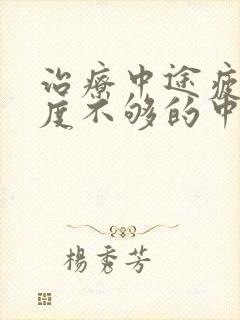 治療中途疲
度不够的中
楊秀芳